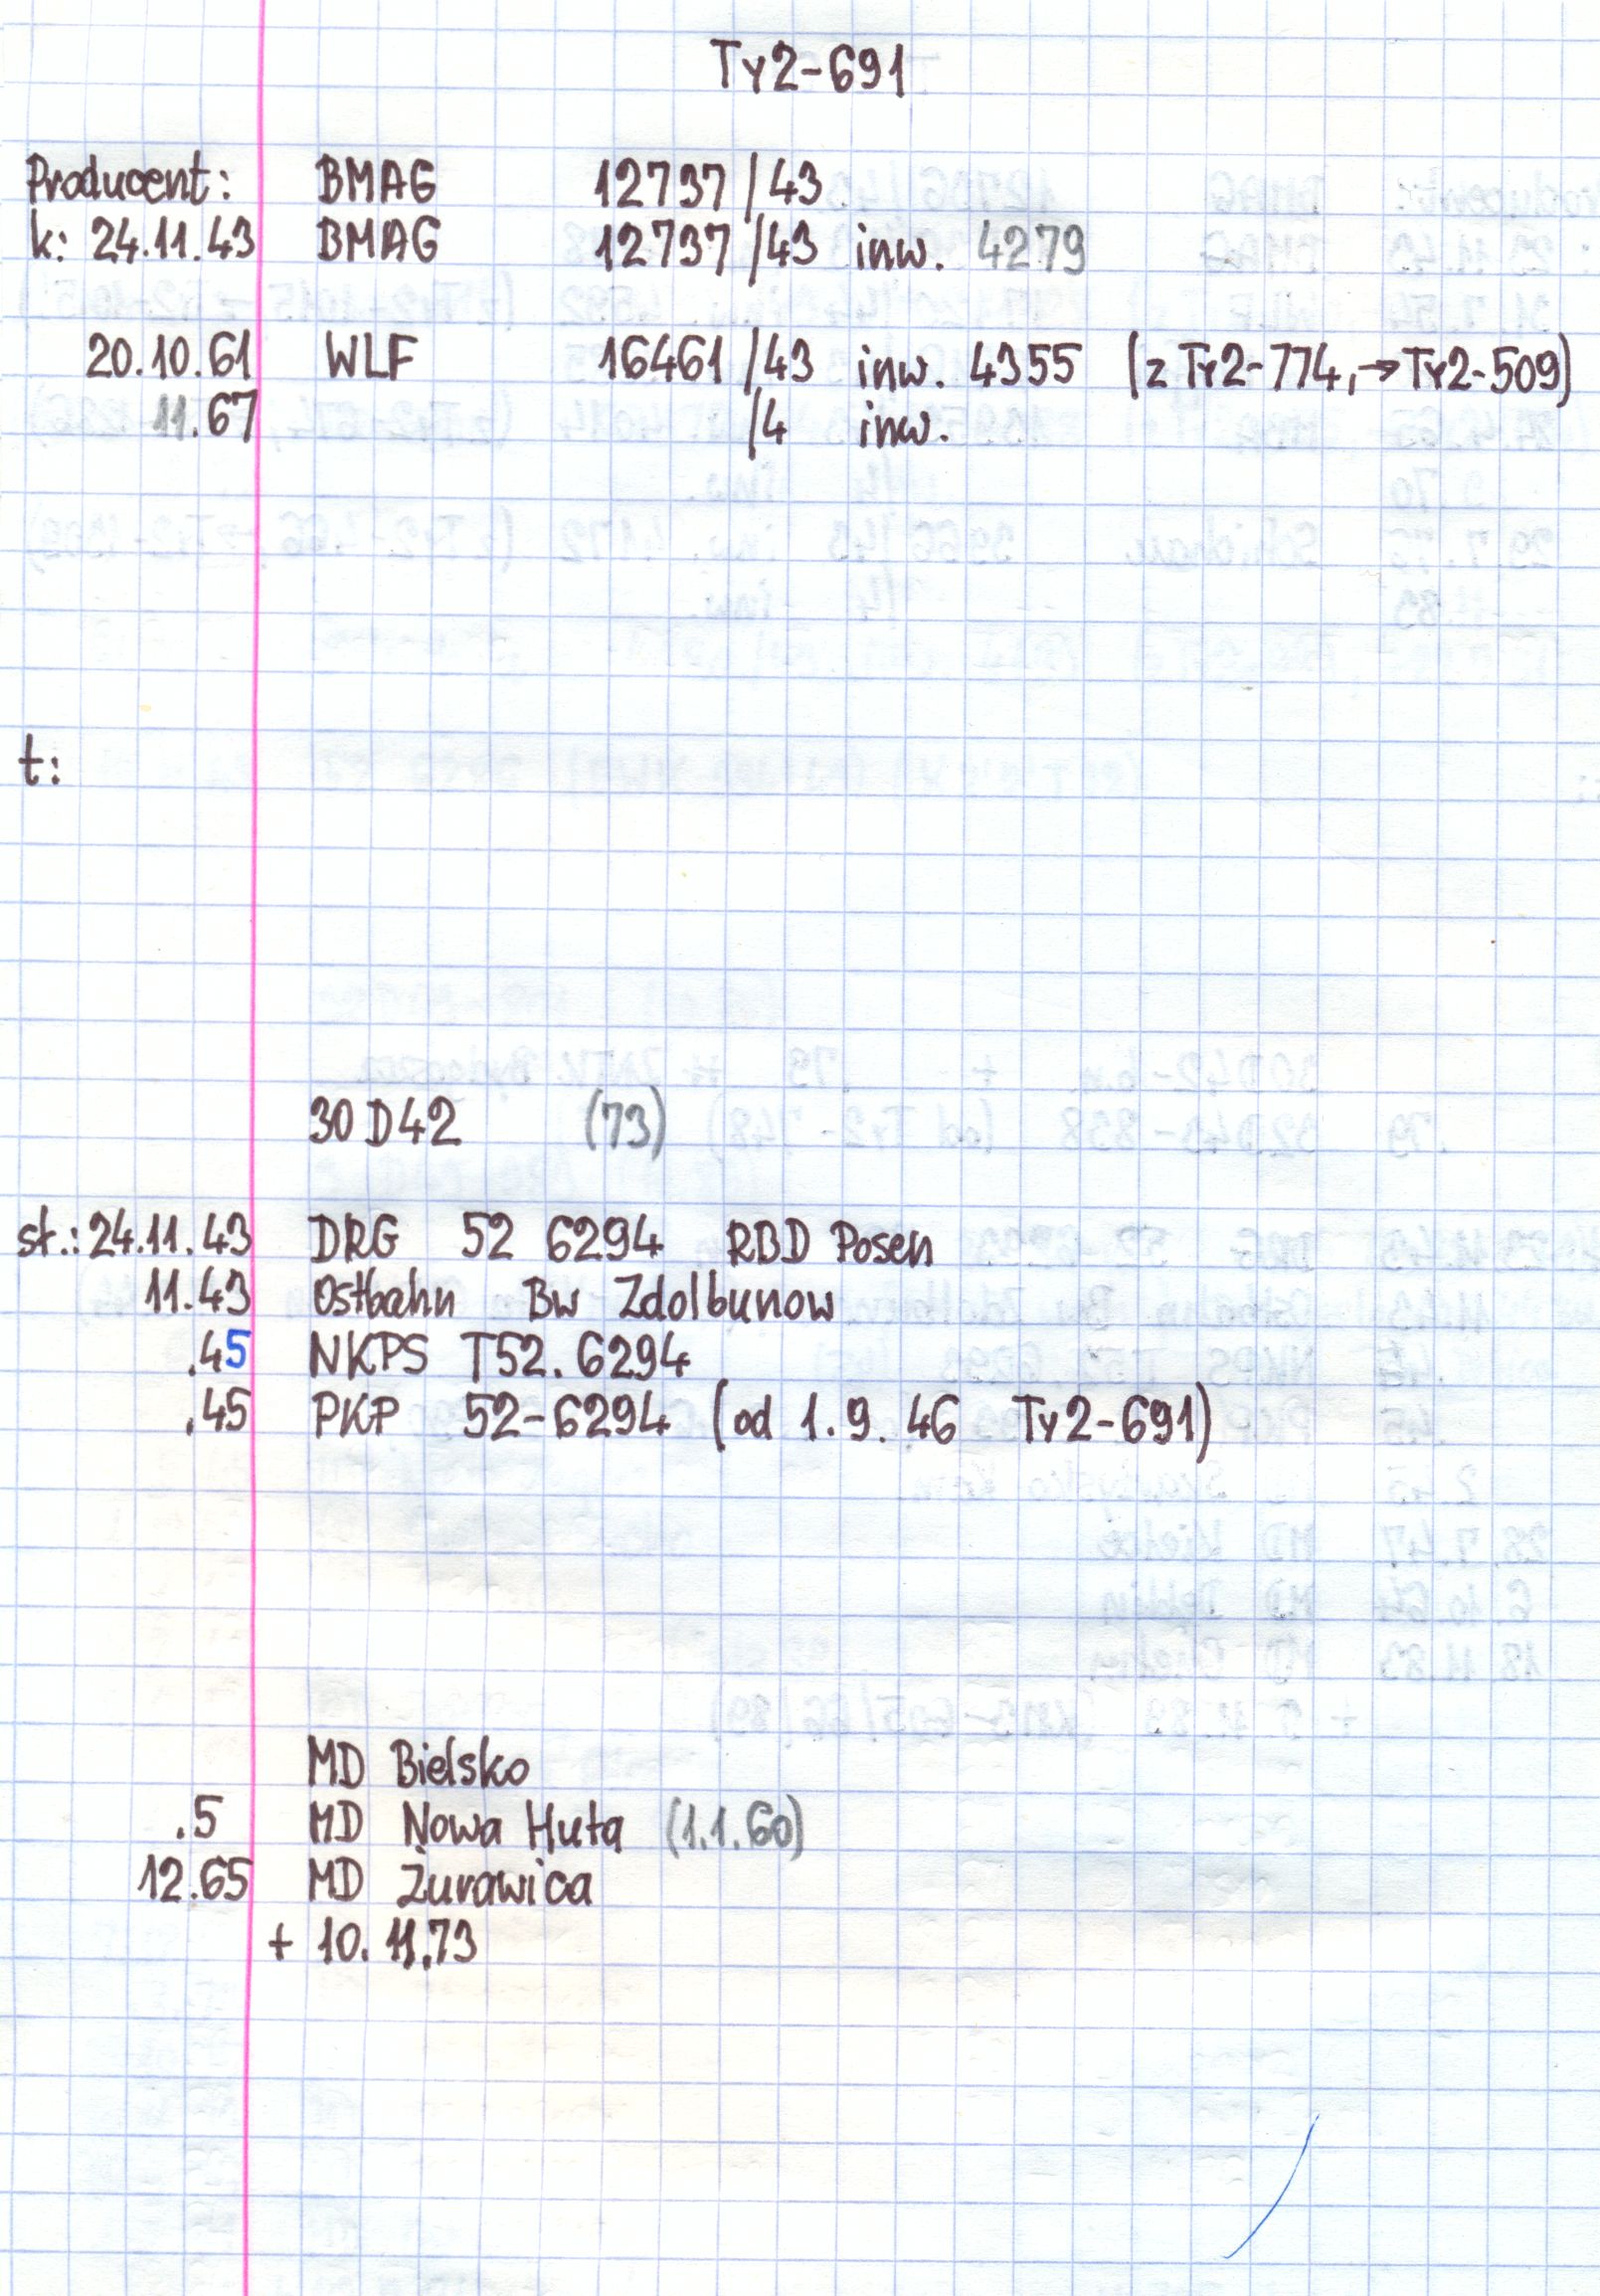 Ty2-691
Producent: BMAG 12737/43
k: 24.11.43 BMAG 12737/43 inw. 4279
20.10.61 WLF 16461/43 inw. 4355 (z Ty2-774, → Ty2-509)
11.67 /4 inw.
t:
30D42 (73)
st.: 24.11.43 DRG 52 6294 RBD Posen
11.43 Ostbahn Bw Zdolbunow
.45 NKPS T52.6294
.45 PKP 52-6294 (od 1.9.46 Ty2-691)
MD Bielsko
.5 MD Nowa Huta (1.1.60)
12.65 MD Żurawica
+ 10.11.73